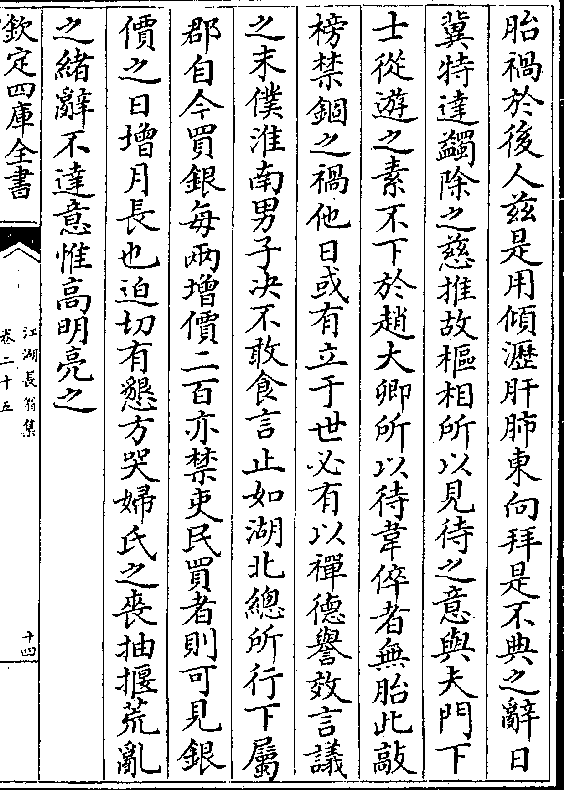 胎禍於後人兹是用傾瀝肝肺東向拜是不典之辭日
冀特達蠲除之慈推故樞相所以見待之意與夫門下
士從遊之素不下於趙大卿所以待韋倅者無胎此敲
榜禁錮之禍他日或有立于世必有以禆德譽效言議
之末僕淮南男子决不敢食言止如湖北總所行下屬
郡自今買銀每兩增價二百亦禁吏民買者則可見銀
價之日增月長也迫切有懇方哭婦氏之喪抽揠荒亂
之緒辭不達意惟高明亮之
欽定四庫全書
江湖長翁集
卷二十五
十四